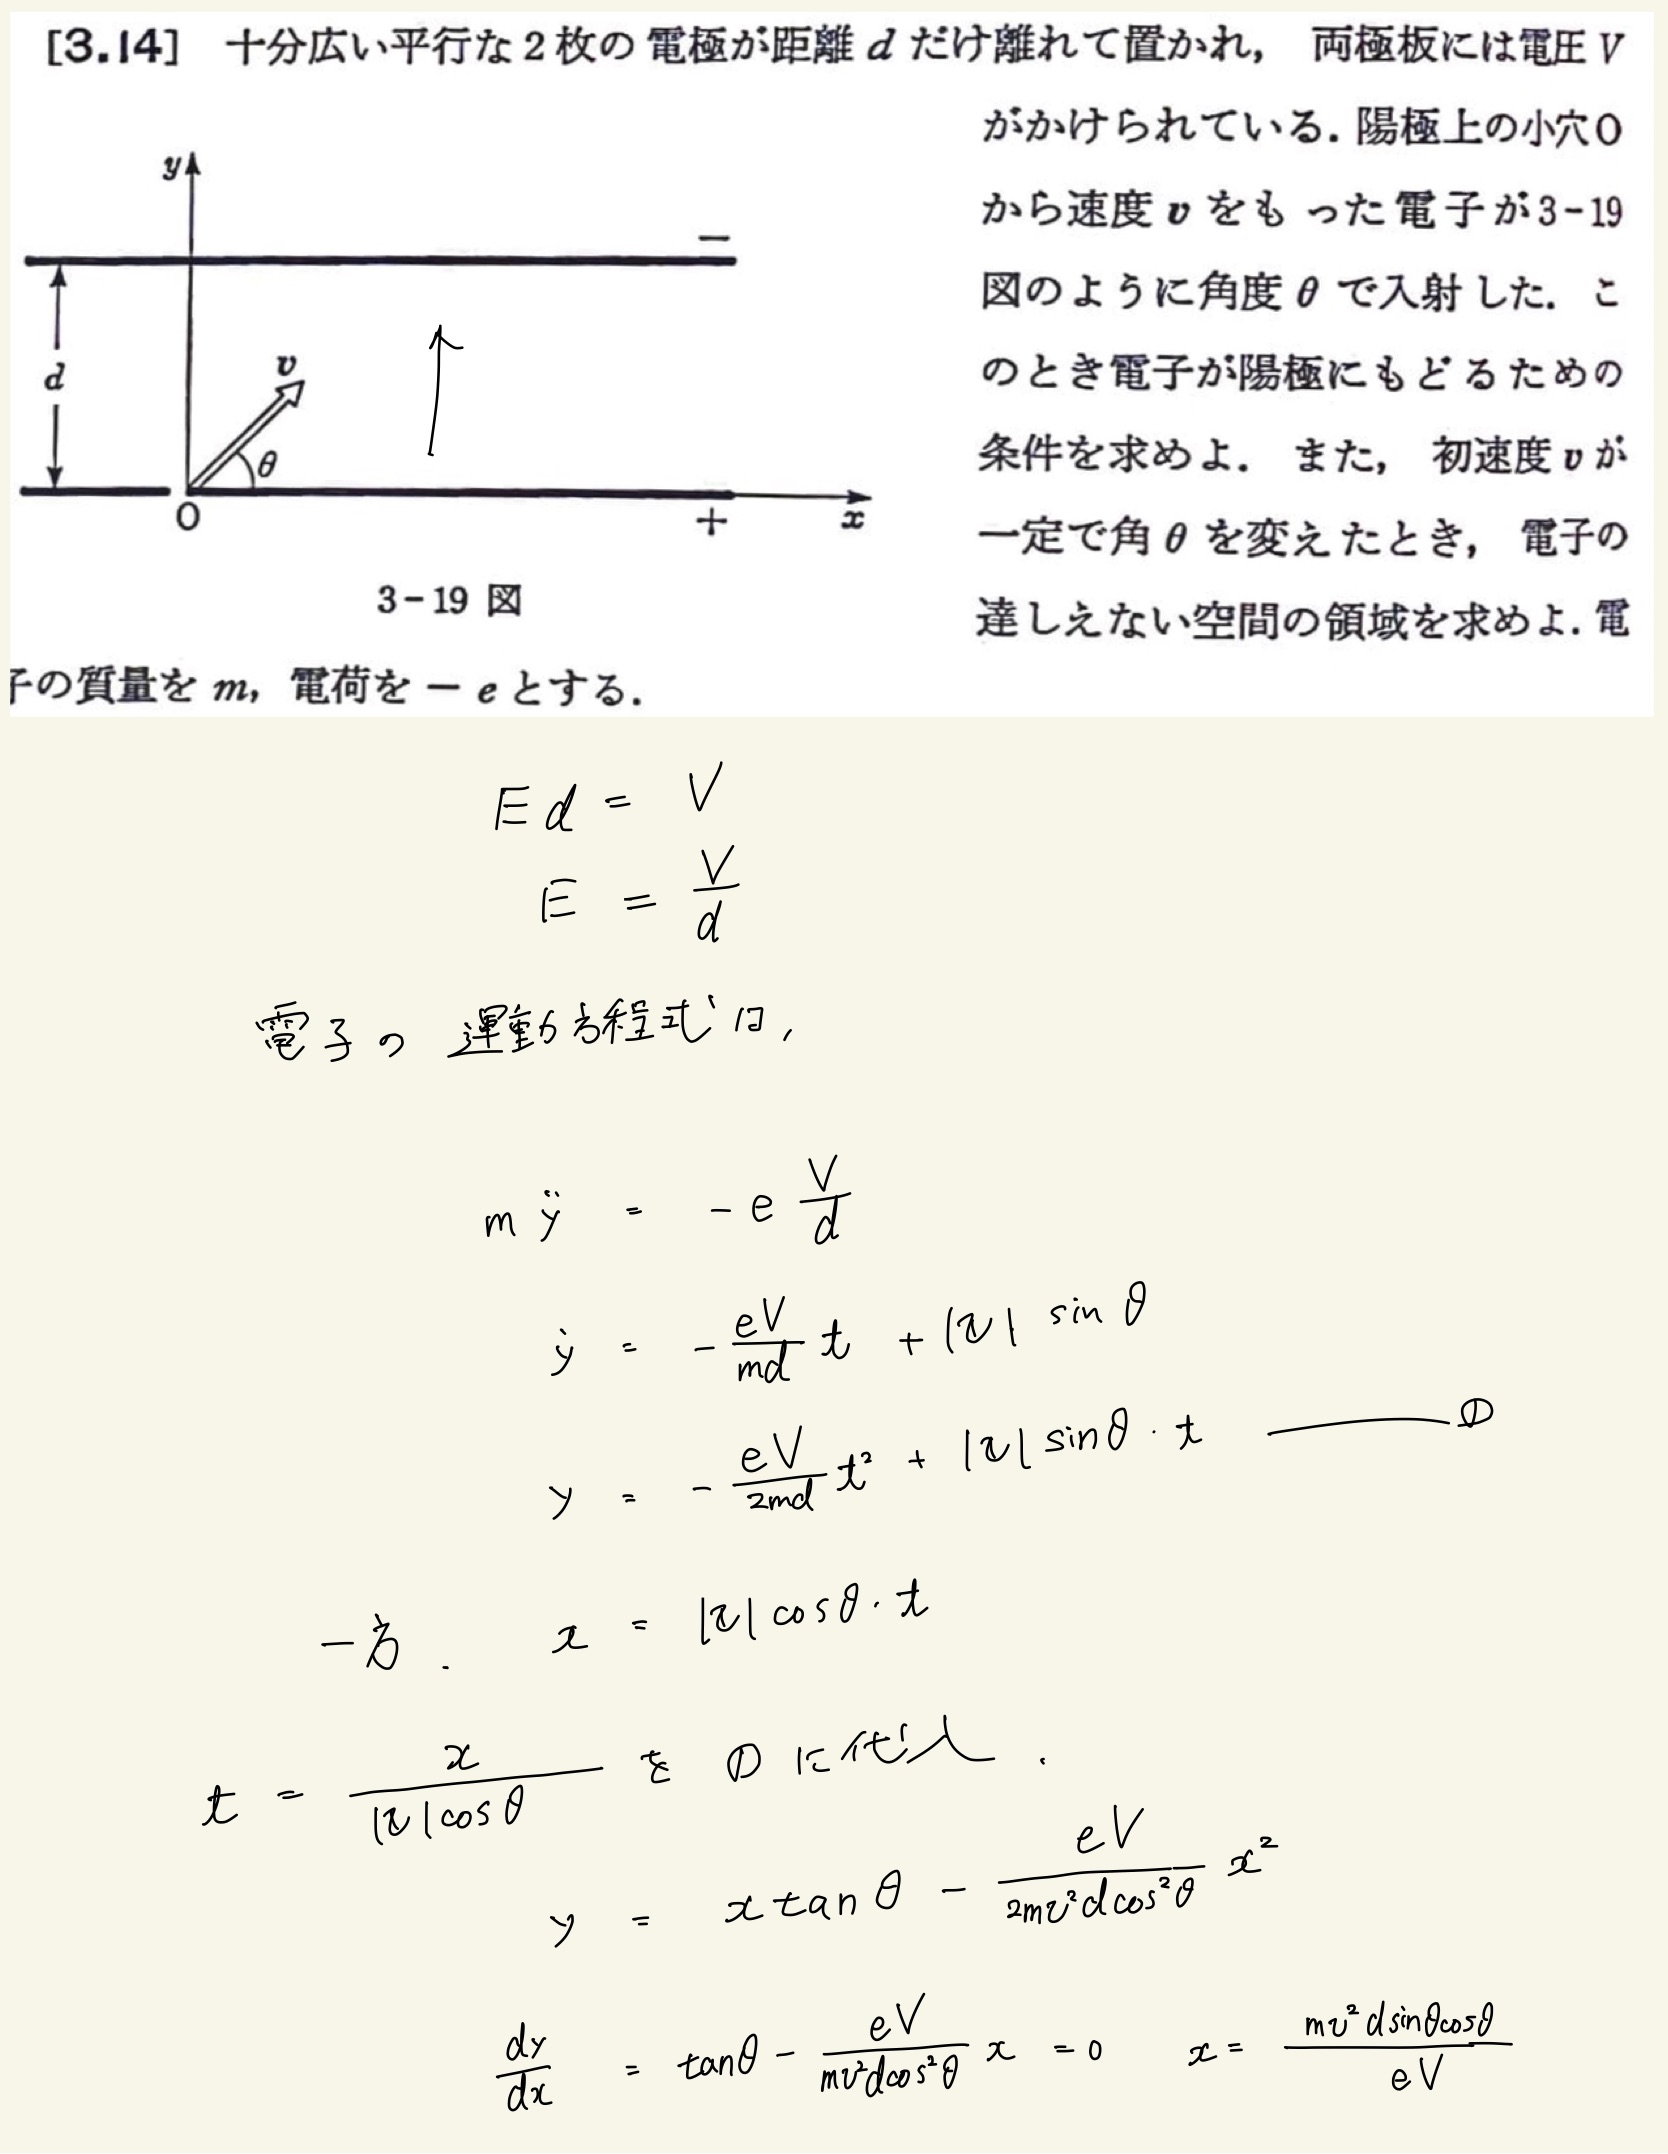 [3.14] 十分広い平行な2枚の電極が距離 d だけ離れて置かれ, 両極板には電圧 V
がかけられている. 陽極上の小穴O
から速度 v をもった電子が3-19
図のように角度 θ で入射した. こ
のとき電子が陽極にもどるための
条件を求めよ. また, 初速度 v が
一定で角 θ を変えたとき, 電子の
達しえない空間の領域を求めよ. 電
子の質量を m, 電荷を − e とする.
y
−
d
v
θ
O
+
x
3-19 図
Ed = V
E = V/d
電子の運動方程式は,
mÿ = -e V/d
ẏ = - eV/md t + |v| sin θ
y = - eV/2md t² + |v| sinθ · t ——— ①
一方. x = |v| cosθ · t
t = x/|v|cosθ を ① に代入.
y = x tan θ - eV/2mv²dcos²θ x²
dy/dx = tanθ - eV/mv²dcos²θ x = 0 x = mv²dsinθcosθ/eV